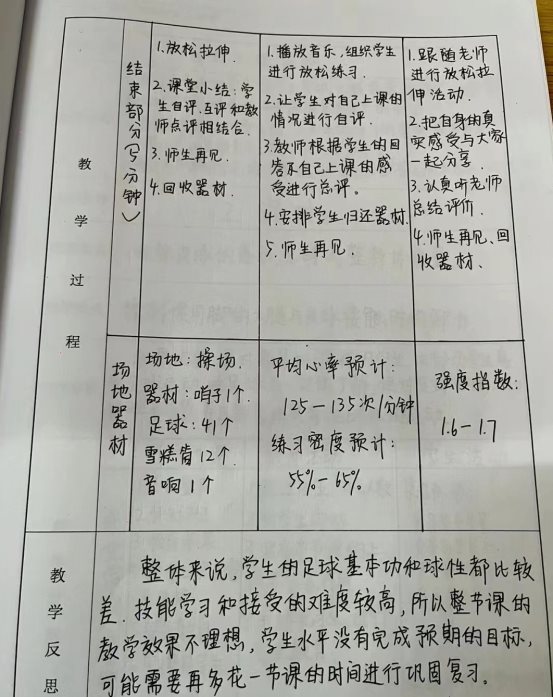 教学过程
结束部分（5分钟）
1.放松拉伸.
2.课堂小结：学
生自评、互评和教
师点评相结合.
3.师生再见.
4.回收器材.
1.播放音乐，组织学生
进行放松练习.
2.让学生对自己上课的
情况进行自评.
3.教师根据学生的回
答和自己上课的感
受进行总评。
4.安排学生归还器材.
5.师生再见.
1.跟随老师
进行放松拉
伸活动.
2.把自身的真
实感受与大家
一起分享.
3.认真听老师
总结评价.
4.师生再见、回
收器材、
场地器材
场地：操场.
器材：哨子1个.
足球：41个
雪糕筒12个.
音响1个
平均心率预计：
125—135次/分钟
练习密度预计：
55%—65%
强度指数：
1.6—1.7
教学反思
整体来说，学生的足球基本功和球性都比较
差.技能学习和接受的难度较高，所以整节课的
教学效果不理想，学生水平没有完成预期的目标，
可能需要再多花一节课的时间进行巩固复习。